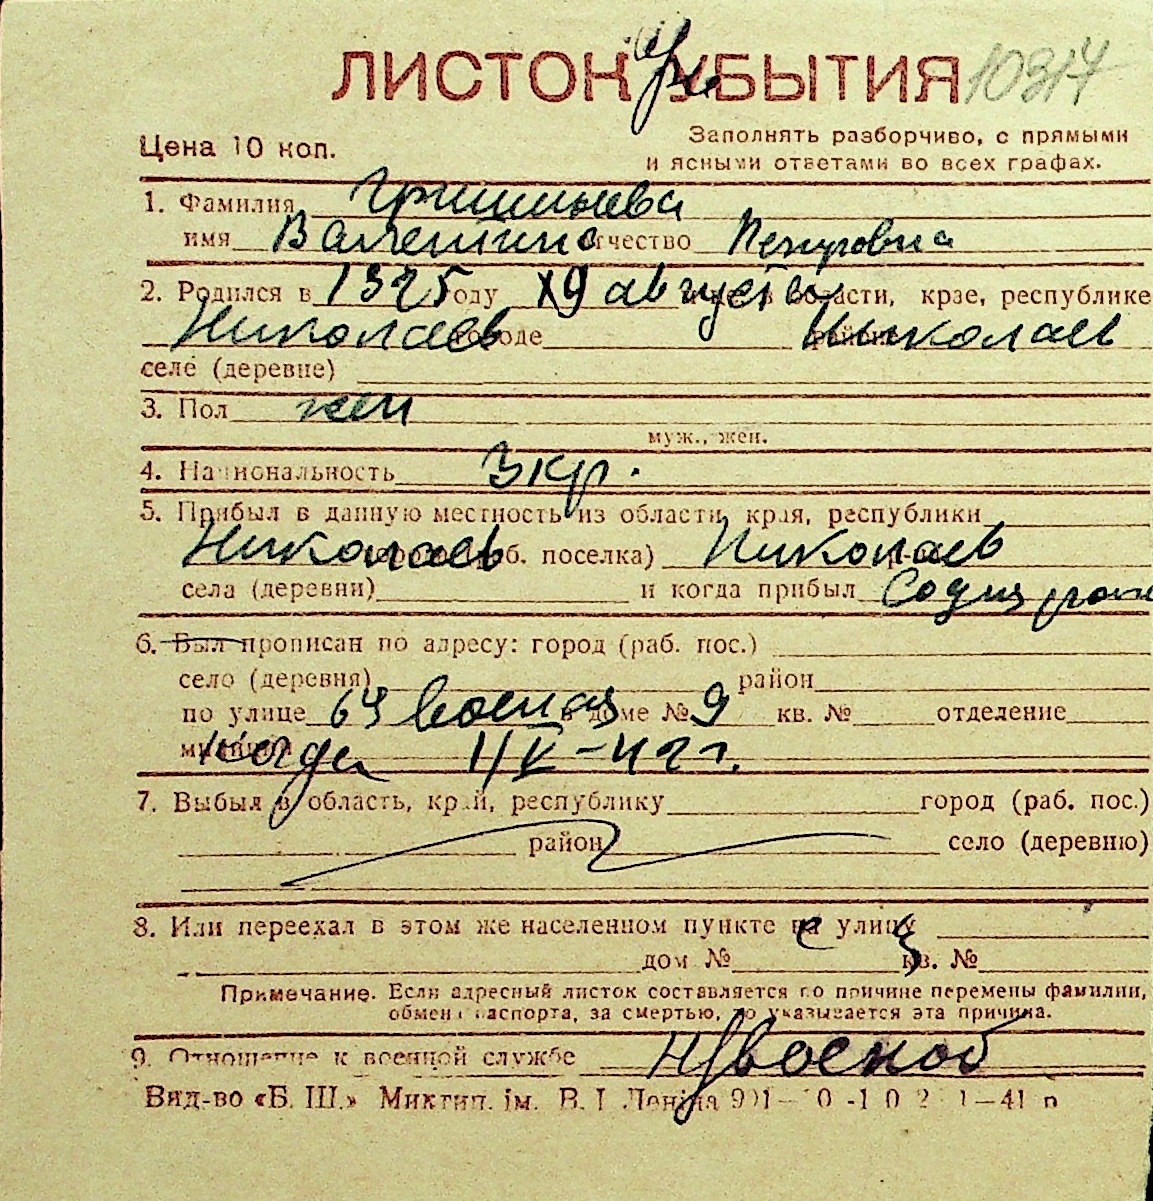 ЛИСТОК УБЫТИЯ 10317
Цена 10 коп.
Заполнять разборчиво, с прямыми
и ясными ответами во всех графах.
1. Фамилия
имя Валентина отчество Петровна
2. Родился в 1925 году 19 августа в области, крае, республике
Николаев городе районе Николаев
селе (деревне)
3. Пол жен
муж., жен.
4. Национальность Укр.
5. Прибыл в данную местность из области, края, республики
Николаев города (раб. поселка) Николаев
села (деревни) и когда прибыл
6. Был прописан по адресу: город (раб. пос.)
село (деревня) район
по улице 64 Военая в доме № 9 кв. № отделение
милиции Когда
7. Выбыл в область, край, республику город (раб. пос.)
район село (деревню)
8. Или переехал в этом же населенном пункте на улицу
дом № кв. №
Примечание. Если адресный листок составляется по причине перемены фамилии,
обмена паспорта, за смертью, то указывается эта причина.
9. Отношение к военной службе н/военоб
Вид-во «Б. Ш.» Миктип. ім. В. І. Леніна